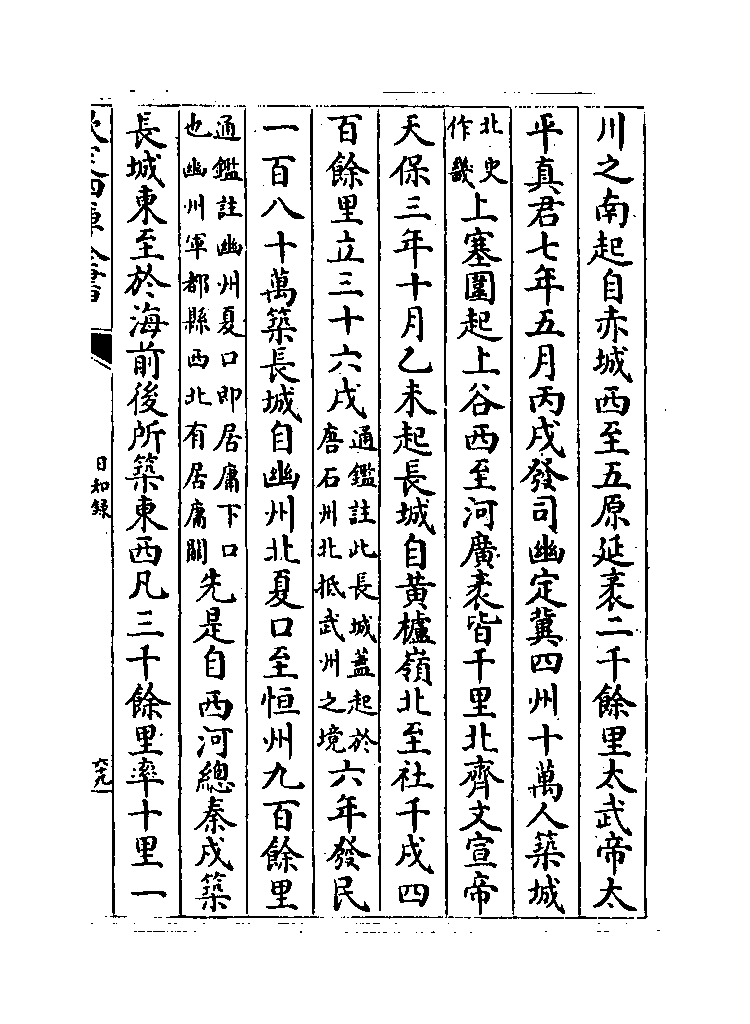 川之南起自赤城西至五原延袤二千餘里太武帝太
平真君七年五月丙戌發司幽定冀四州十萬人築城
北史作畿上塞圍起上谷西至河廣袤皆千里北齊文宣帝
天保三年十月乙未起長城自黄櫨嶺北至社千戍四
百餘里立三十六戍通鑑註此長城蓋起於唐石州北抵武州之境六年發民
一百八十萬築長城自幽州北夏口至恒州九百餘里
通鑑註幽州夏口即居庸下口也幽州軍都縣西北有居庸關先是自西河總秦戍築
長城東至於海前後所築東西凡三千餘里率十里一
日知録